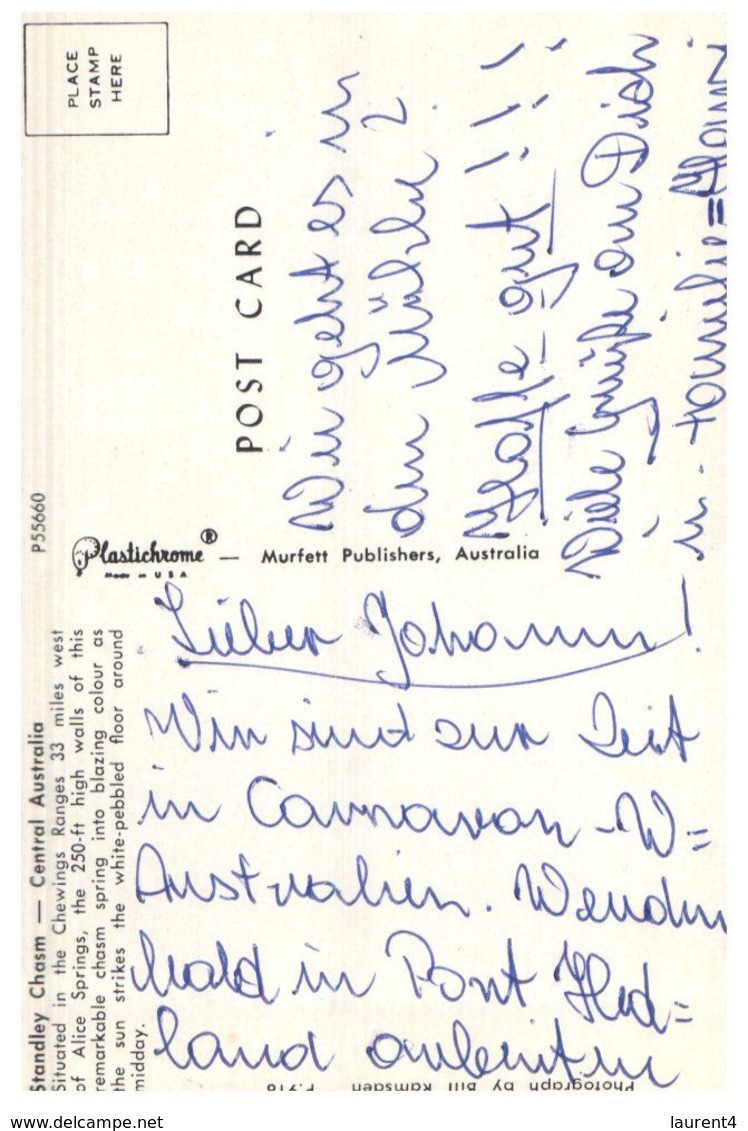 Standley Chasm — Central Australia
Situated in the Chewings Ranges 33 miles west
of Alice Springs, the 250-ft high walls of this
remarkable chasm spring into blazing colour as
the sun strikes the white-pebbled floor around
midday.
P55660
PLACE
STAMP
HERE
Plastichrome ®
Made in U S A
— Murfett Publishers, Australia
POST CARD
Lieber Johann!
Wir sind zur Zeit
in Carnavon - W=
Australien. Werden
bald in Port Hed=
land arbeiten
Wie geht es in
der Mühle?
Hoffe gut!!!
Viele Grüße an Dich
u.
Photograph by Bill Ramsden
www.delcampe.net
laurent4